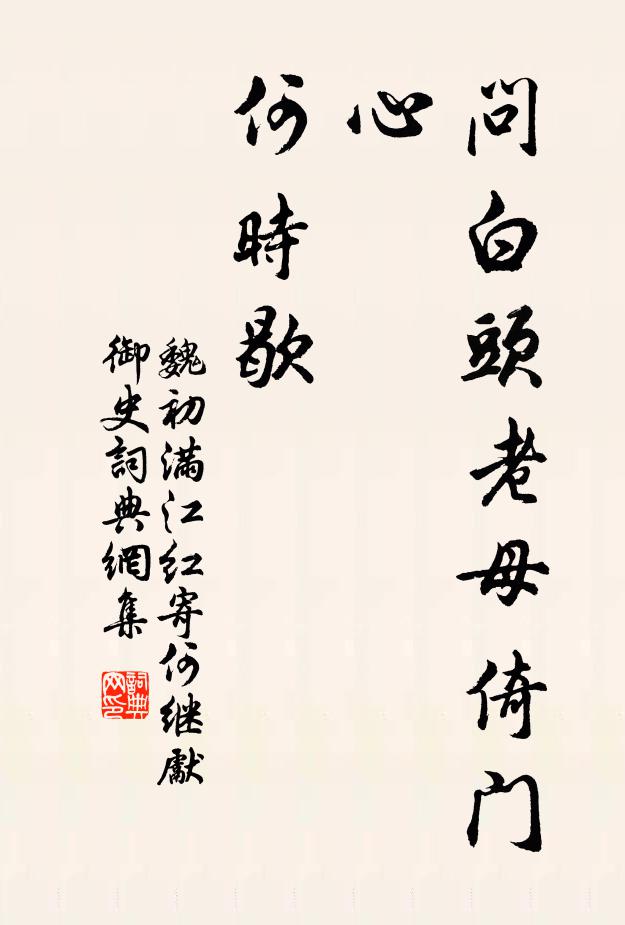 問白頭老母倚门
心
何時歇
魏初满江红寄何继獻
御史詞典網集
詞典网印